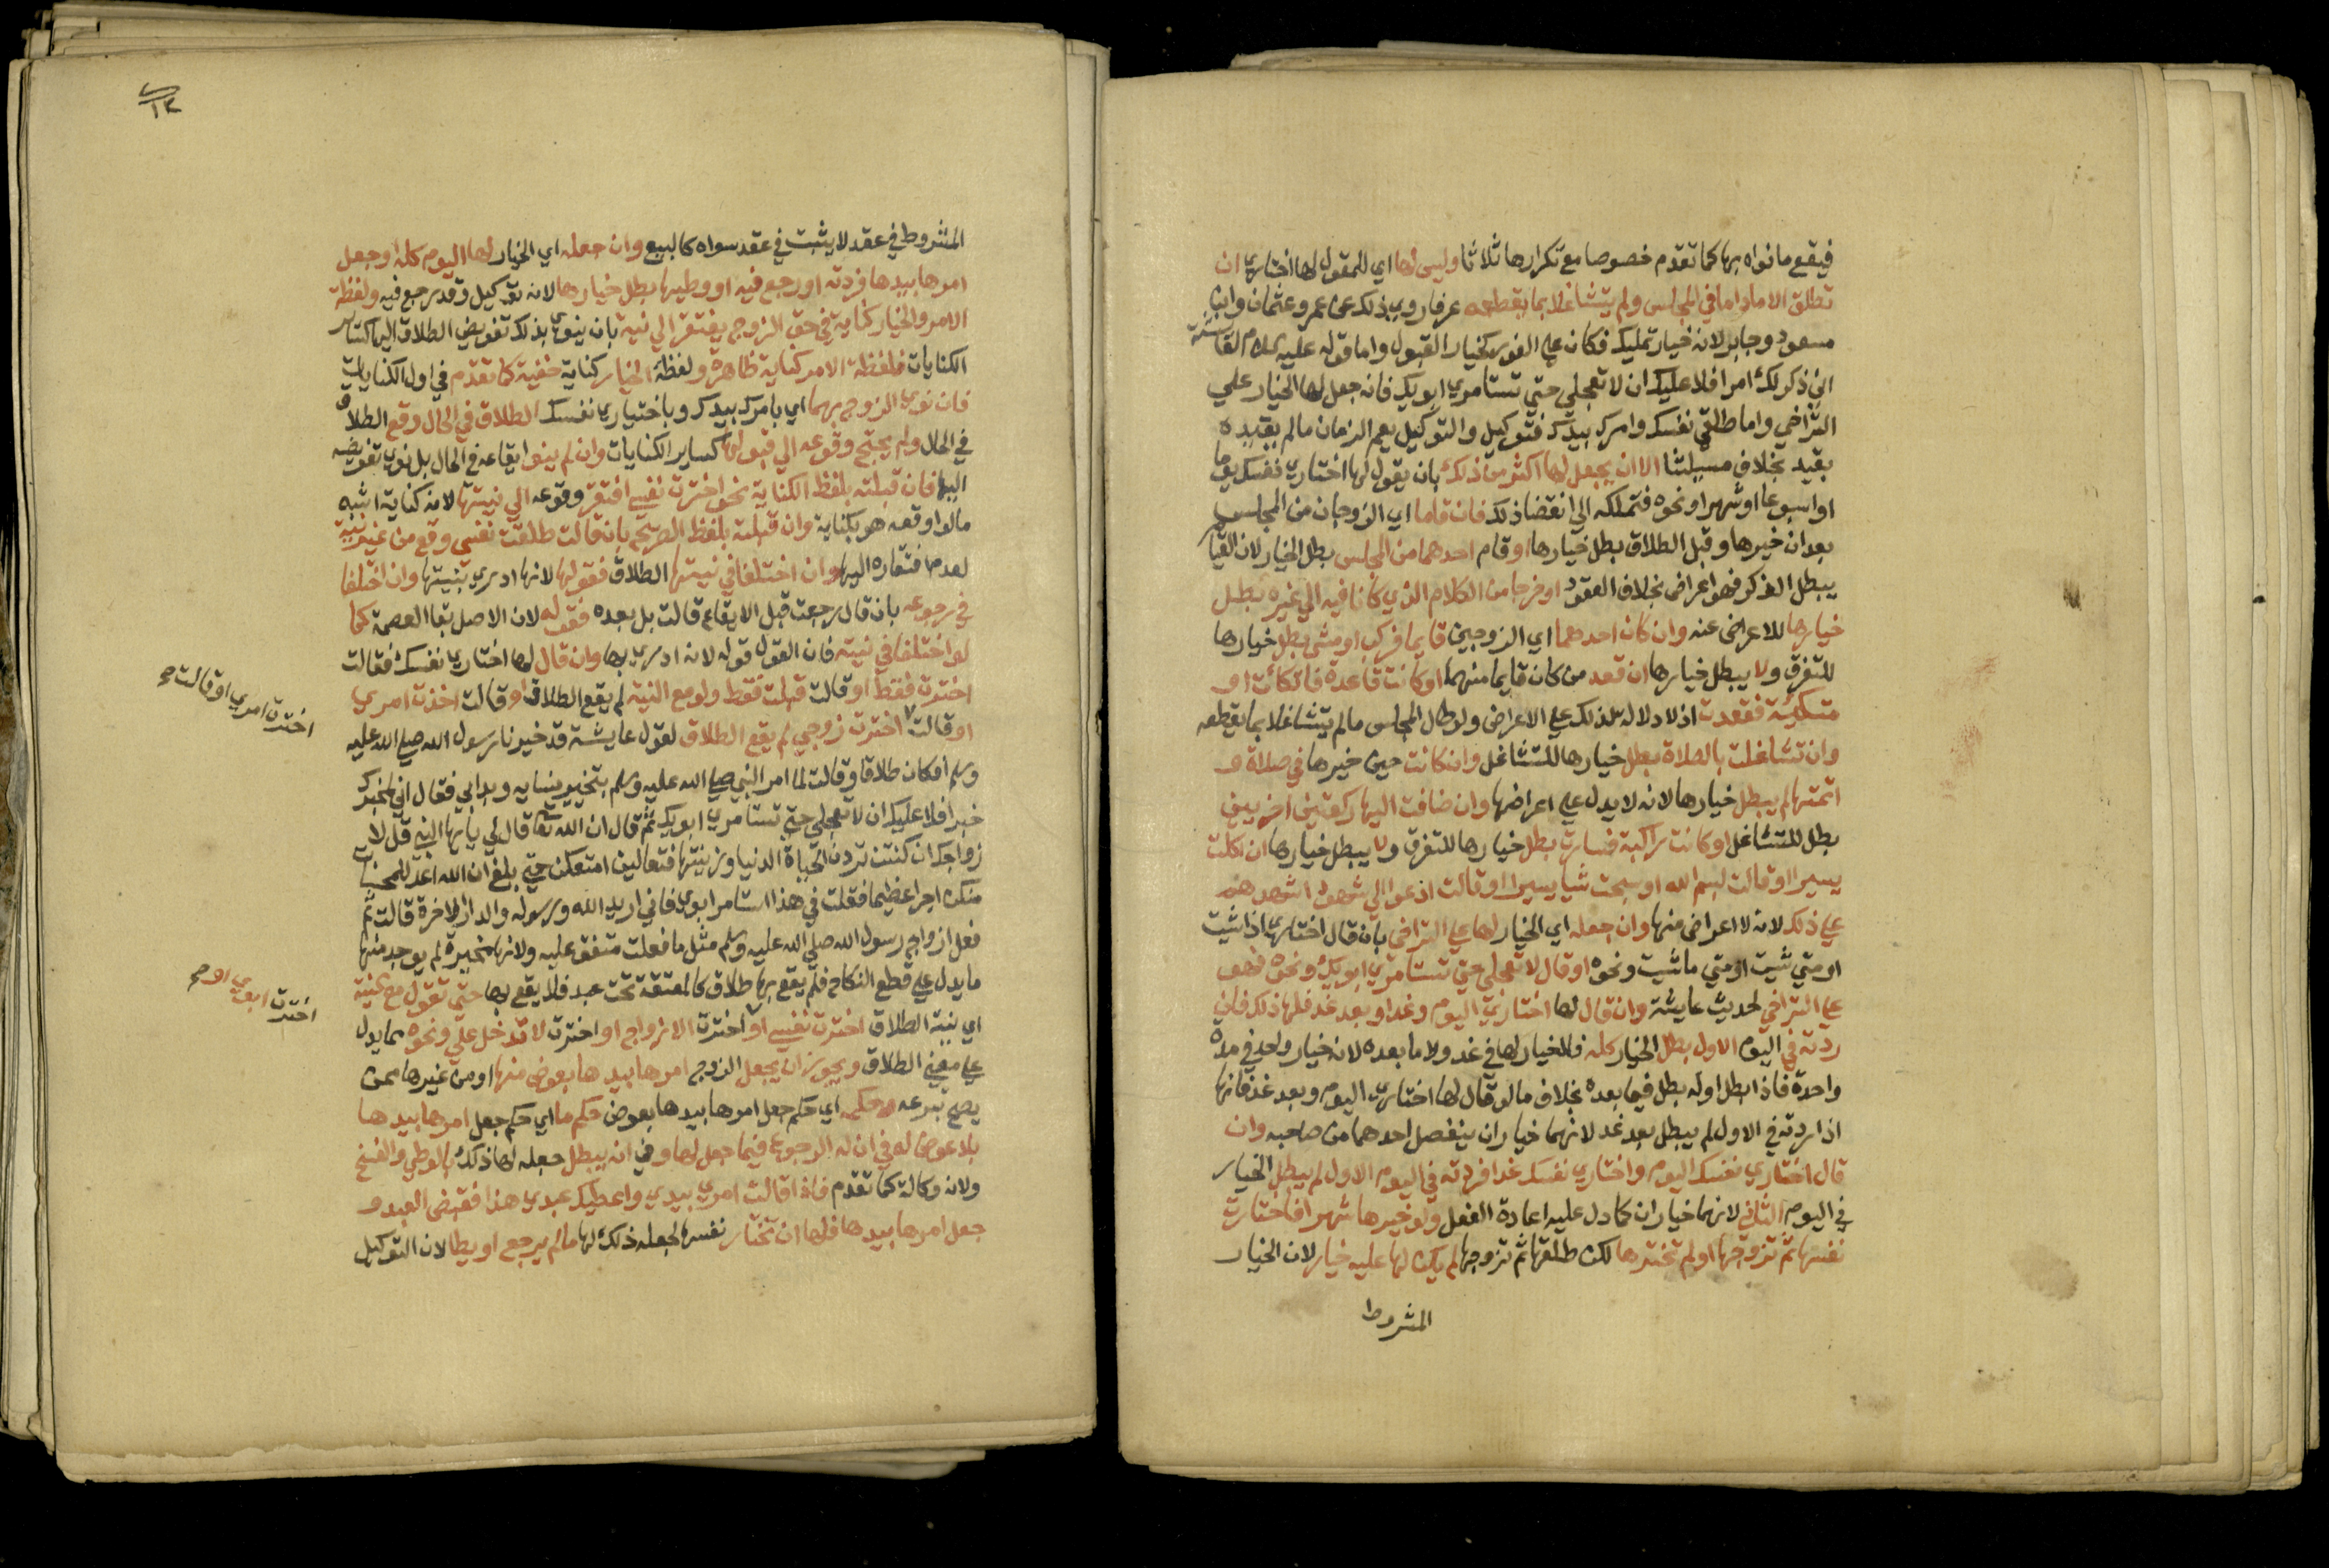 فيقع ما نواه بها كما تقدم خصوصا مع تكرارها ثلاثا وليس لها اي للمقول لها اختاري ان
تطلق الا ما داما في المجلس ولم يتشاغلا بما يقطعه عرفا روي ذلك عن عمر وعثمان وابن
مسعود وجابر لانه خيار تمليك فكان علي الفور كخيار القبول واما قوله عليه السلام لعائشة
اني ذاكر لك امرا فلا عليك ان لا تعجلي حتي تستامري ابويك فانه جعل لها الخيار علي
التراخي واما طلقي نفسك وامرك بيدك فتوكيل والتوكيل يعم الزمان ما لم يقيده
بقيد بخلاف مسيلتنا الا ان يجعل لها اكثر من ذلك بان يقول لها اختاري نفسك يوما
او اسبوعا او شهرا ونحوه فتملكه الي انقضا ذلك فان قاما اي الزوجان من المجلس
بعد ان خيرها وقبل الطلاق بطل خيارها او قام احدهما من المجلس بطل الخيار لان القيام
يبطل الفكر فهو اعراض بخلاف العقود او خرجا من الكلام الذي كانا فيه الي غيره بطل
خيارها للاعراض عنه وان كان احدهما اي الزوجين قايما فركب او مشي بطل خيارها
للتفرق ولا يبطل خيارها ان قعد من كان قايما منهما او كانت قاعدة فاتكات او
متكية فقعدت اذ لا دلالة لذلك علي الاعراض ولو طال المجلس ما لم يتشاغلا بما يقطعه
وان تشاغلت بالصلاة بطل خيارها للتشاغل وان كانت حين خيرها في صلاة و
اتمتها لم يبطل خيارها لانه لا يدل علي اعراضها وان ضافت اليها ركعتين اخريين
بطل للتشاغل او كانت راكبة فسارت بطل خيارها للتفرق ولا يبطل خيارها ان اكلت
يسيرا او قالت بسم الله او سبحت شيا يسيرا او قالت ادعوا الي شهودا اشهدهم
علي ذلك لانه لا اعراض منها وان جعله اي الخيار لها علي التراخي بان قال اختاري اذا شيت
او متي شيت او متي ما شيت ونحوه او قال لا تعجلي حتي تستامري ابويك ونحوه فهو
علي التراخي لحديث عايشة وان قال لها اختاري اليوم وغدا وبعد غد فلها ذلك فان
ردته في اليوم الاول بطل الخيار كله فلا خيار لها في غد ولا ما بعده لانه خيار واحد في مدة
واحدة فاذا بطل اوله بطل فيما بعده بخلاف ما لو قال لها اختاري اليوم وبعد غد فانها
اذا ردته في الاول لم يبطل بعد غد لانهما خياران ينفصل احدهما من صاحبه وان
قال اختاري نفسك اليوم واختاري نفسك غدا فردته في اليوم الاول لم يبطل الخيار
في اليوم الثاني لانهما خياران كما دل عليه اعادة الفعل ولو خيرها شهرا فاختارت
نفسها ثم تزوجها او لم تختر ها لكن طلقها ثم تزوجها لم يكن لها عليه خيار لان الخيار
المشروط
١٢
المشروط في عقد لا يثبت في عقد سواه كالبيع وان جعله اي الخيار لها اليوم كله او جعل
امرها بيدها فردته او رجع فيه او وطيها بطل خيارها لانه توكيل وقد رجع فيه ولفظة
الامر والخيار كناية في حق الزوج يفتقر الي نية بان ينوي بذلك تفويض الطلاق اليها كساير
الكنايات فلفظة الامر كناية ظاهرة ولفظة الخيار كناية خفية كما تقدم في اول الكنايات
فان نوي الزوج بهما اي بامرك بيدك وباختياري نفسك الطلاق في الحال وقع الطلاق
في الحال ولم يحتج وقوعه الي قبولها كساير الكنايات وان لم ينو ايقاعه في الحال بل نوي تفويضه
اليها فان قبلته بلفظ الكناية نحو اخترت نفسي افتقر وقوعه الي نيتها لانه كناية اشبه
ما لو اوقعه هو بكناية وان قبلته بلفظ الصريح بان قالت طلقت نفسي وقع من غير نية
لعدم افتقاره اليها وان اختلفا في نيتها الطلاق فقولها لانها ادري بنيتها وان اختلفا
في رجوعه بان قال رجعت قبل الايقاع قالت بل بعده فقوله لان الاصل بقا العصمة كما
لو اختلفا في نيته فان القول قوله لانه ادري بها وان قال لها اختاري نفسك فقالت
اخترت فقط او قالت قبلت فقط ولو مع النية لم يقع الطلاق او قالت اخذت امري
او قالت اخترت زوجي لم يقع الطلاق لقول عايشة قد خيرنا رسول الله صلي الله عليه
وسلم افكان طلاقا وقالت لما امر النبي صلي الله عليه وسلم بتخيير نسايه بدا بي فقال اني لمخبرك
خبرا فلا عليك ان لا تعجلي حتي تستامري ابويك ثم قال ان الله تعا قال لي يا ايها النبي قل لا
زواجك ان كنتن تردن الحياة الدنيا وزينتها فتعالين امتعكن حتي بلغ ان الله اعد للمحسنات
منكن اجرا عظيما فقلت في هذا استامر ابوي فاني اريد الله ورسوله والدار الاخرة قالت ثم
فعل ازواج رسول الله صلي الله عليه وسلم مثل ما فعلت متفق عليه ولانها مخيرة لم يوجد منها
ما يدل علي قطع النكاح فلم يقع بها طلاق كالمعتقة تحت عبد فلا يقع بها حتي تقول مع النية
اي نية الطلاق اخترت نفسي او اخترت الازواج او اخترت لا تدخل علي ونحوه مما يدل
علي معني الطلاق ويجوز ان يجعل الزوج امرها بيدها بعوض منها او من غيرها ممن
يصح تبرعه وحكمه اي حكم جعل امرها بيدها بعوض حكم ما اي حكم جعل امرها بيدها
بلا عوض له في ان له الرجوع فيما جعل لها وفي انه يبطل جعله لها ذلك بالوطي والفسخ
ولانه وكالة كما تقدم فاذا قالت امري بيدي واعطيك عبدي هذا فقبض العبد و
جعل امرها بيدها فلها ان تختار نفسها لجعله ذلك لها ما لم يرجع او يطا لان التوكيل
اخترت امري او قالت صح
اخترت ابوي او صح